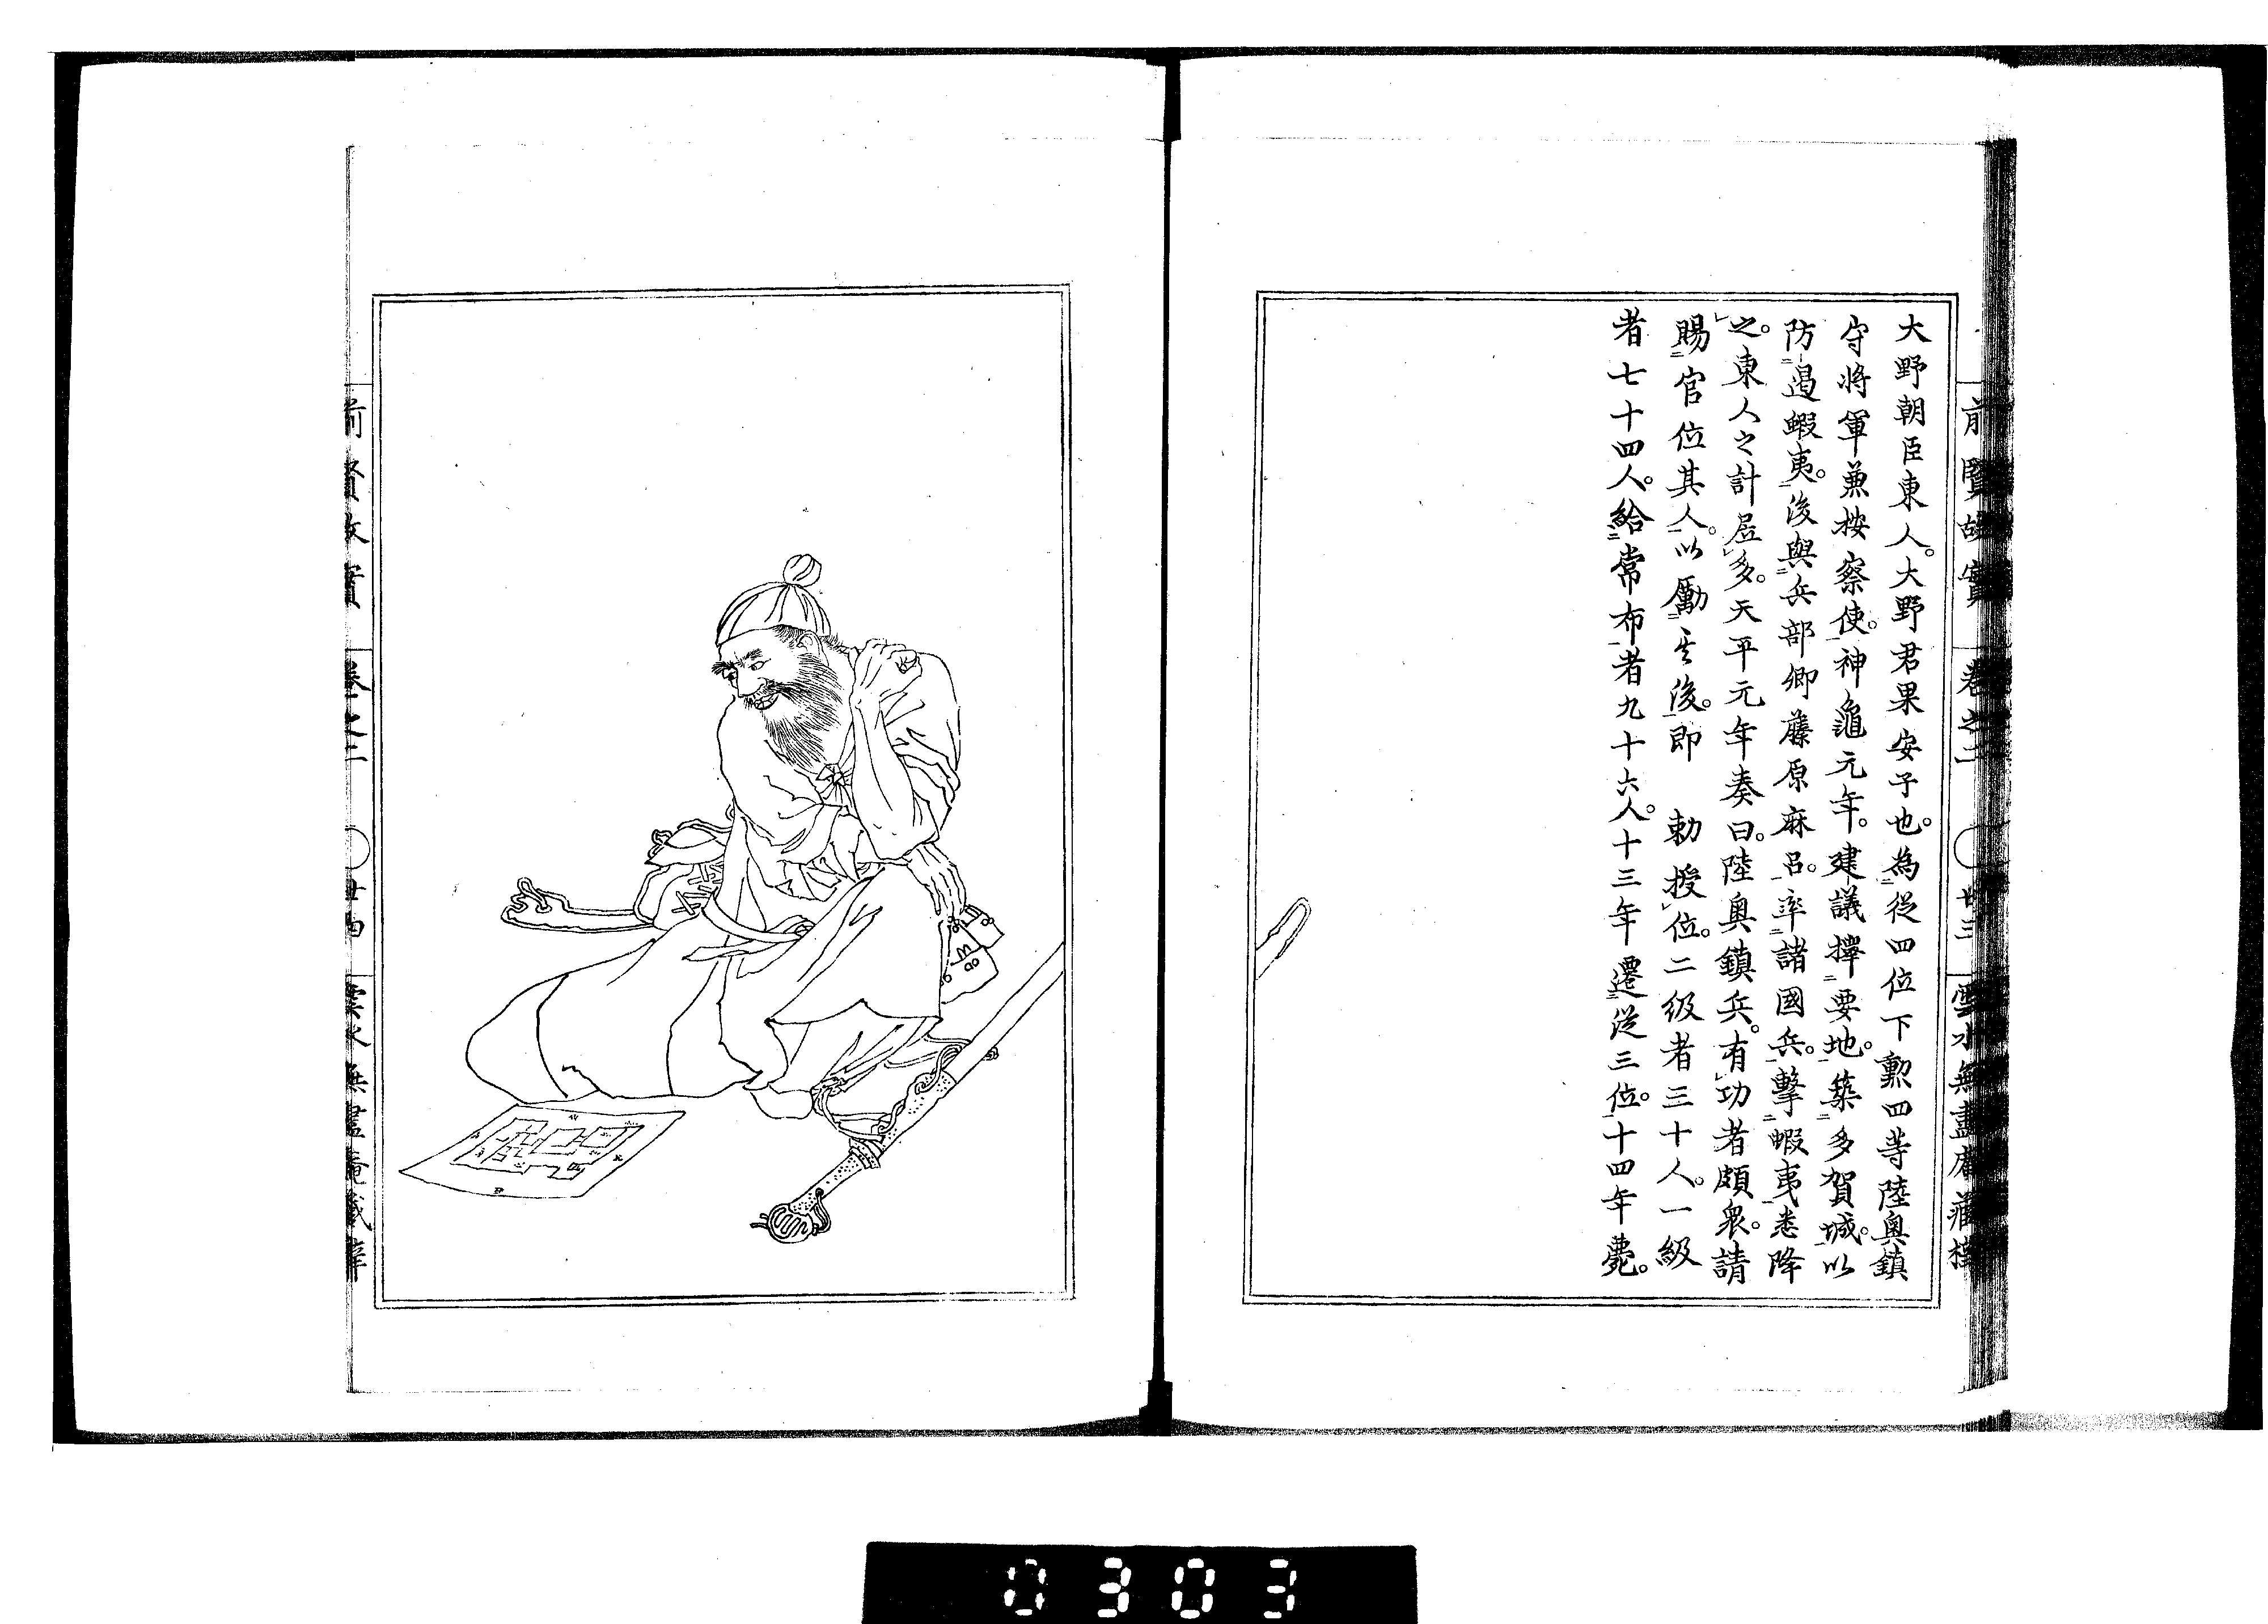 前賢故實 卷之二 廿三 雲水無盡庵藏
大野朝臣東人。大野君果安子也。為從四位下勲四等陸奥鎮
守將軍兼按察使。神龜元年。建議擇要地。築多賀城。以
防遏蝦夷。後與兵部卿藤原麻呂。率諸國兵。擊蝦夷悉降
之。東人之計居多。天平元年奏曰。陸奥鎮兵。有功者頗衆。請
賜官位其人。以勵其後。即 勅授位。二級者三十人。一級
者七十四人。給常布者九十六人。十三年遷從三位。十四年薨。
前賢故實 卷之二 廿四 雲水無盡庵藏
0303